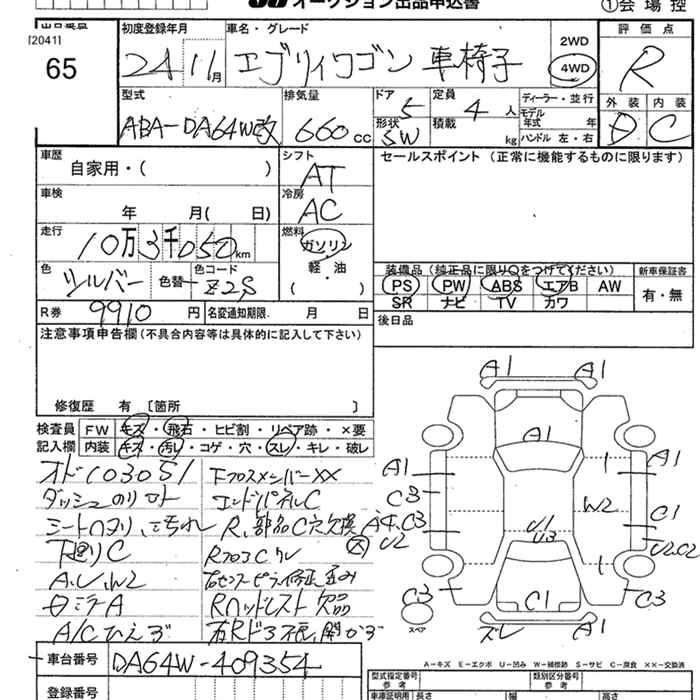 オークション出品申込書
①会場控
[20411
65
初度登録年月
24年11月
車名・グレード
エブリィワゴン 車椅子
2WD
4WD
評価点
R
外装 内装
D C
型式
ABA-DA64W改
排気量
660cc
ドア 5
形状 SW
定員 4人
積載 kg
ディーラー・並行
モデル年式 年
ハンドル 左・右
車歴
自家用・( )
シフト
AT
車検
年 月( 日)
冷房
AC
走行
10万3千050km
燃料
ガソリン
軽・油
( )
色
シルバー
色替
色コード
Z2S
R券 9910円
名変通知期限 月 日
セールスポイント (正常に機能するものに限ります)
装備品 (純正品に限り○をつけてください)
PS PW ABS エアB AW
SR ナビ TV カワ
新車保証書
有・無
後日品
注意事項申告欄(不具合内容等は具体的に記入して下さい)
修復歴 有 〔箇所 〕
検査員記入欄
FW キズ・飛石・ヒビ割・リペア跡・×要
内装 キズ・汚レ・コゲ・穴・スレ・キレ・破レ
オド103051
ダッシュのリ
シートヘタリ、こ汚れ
下廻りC
A,U,W2
ミラーA
A/Cひえず
FフロスメンバーXX
エンドパネルC
R、部品C穴欠損
RフロアC
修正歪み
Rヘッドレスト欠品
A1 A1
A1
A1 A1
C3
W2
C1
A4,C3
U2
U1
U3
U2,C2
C3 C3
C1
スペア
ズレ
A1
A-キズ E-エクボ U-凹み W-補修跡 S-サビ C-腐食 XX-交換済
車台番号
DA64W-409354
登録番号
型式指定番号
参考
類別区分番号
参考
車庫証明用
長さ
幅
高さ